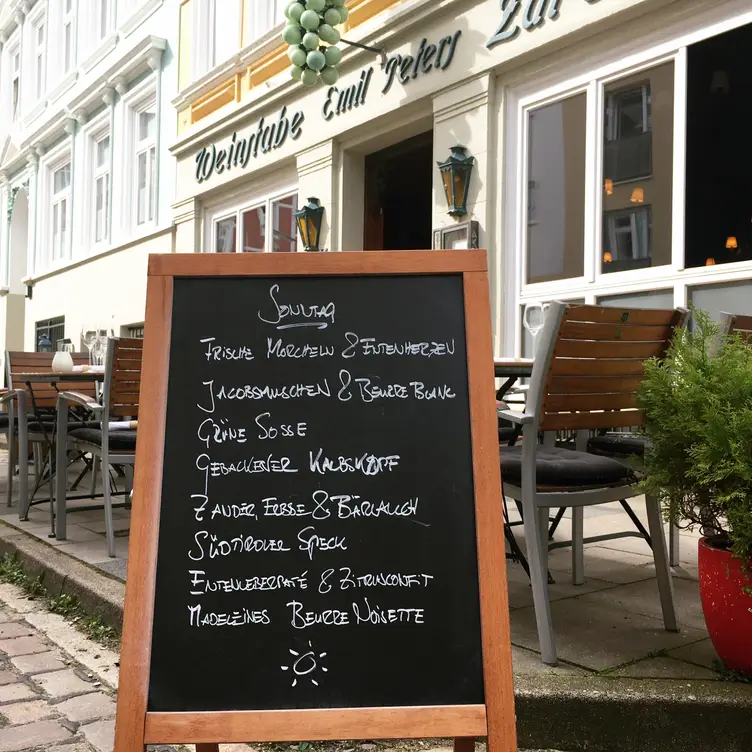 Weinstube Emil Peters
Zur
SONNTAG
FRISCHE MORCHELN & ENTENHERZEN
JACOBSMUSCHEN & BEURRE BLANC
GRÜNE SOSSE
GEBACKENER KALBSKOPF
ZANDER, ERBSE & BÄRLAUCH
SÜDTIROLER SPECK
ENTENLEBERPATÉ & ZITRUSKONFIT
MADELEINES BEURRE NOISETTE